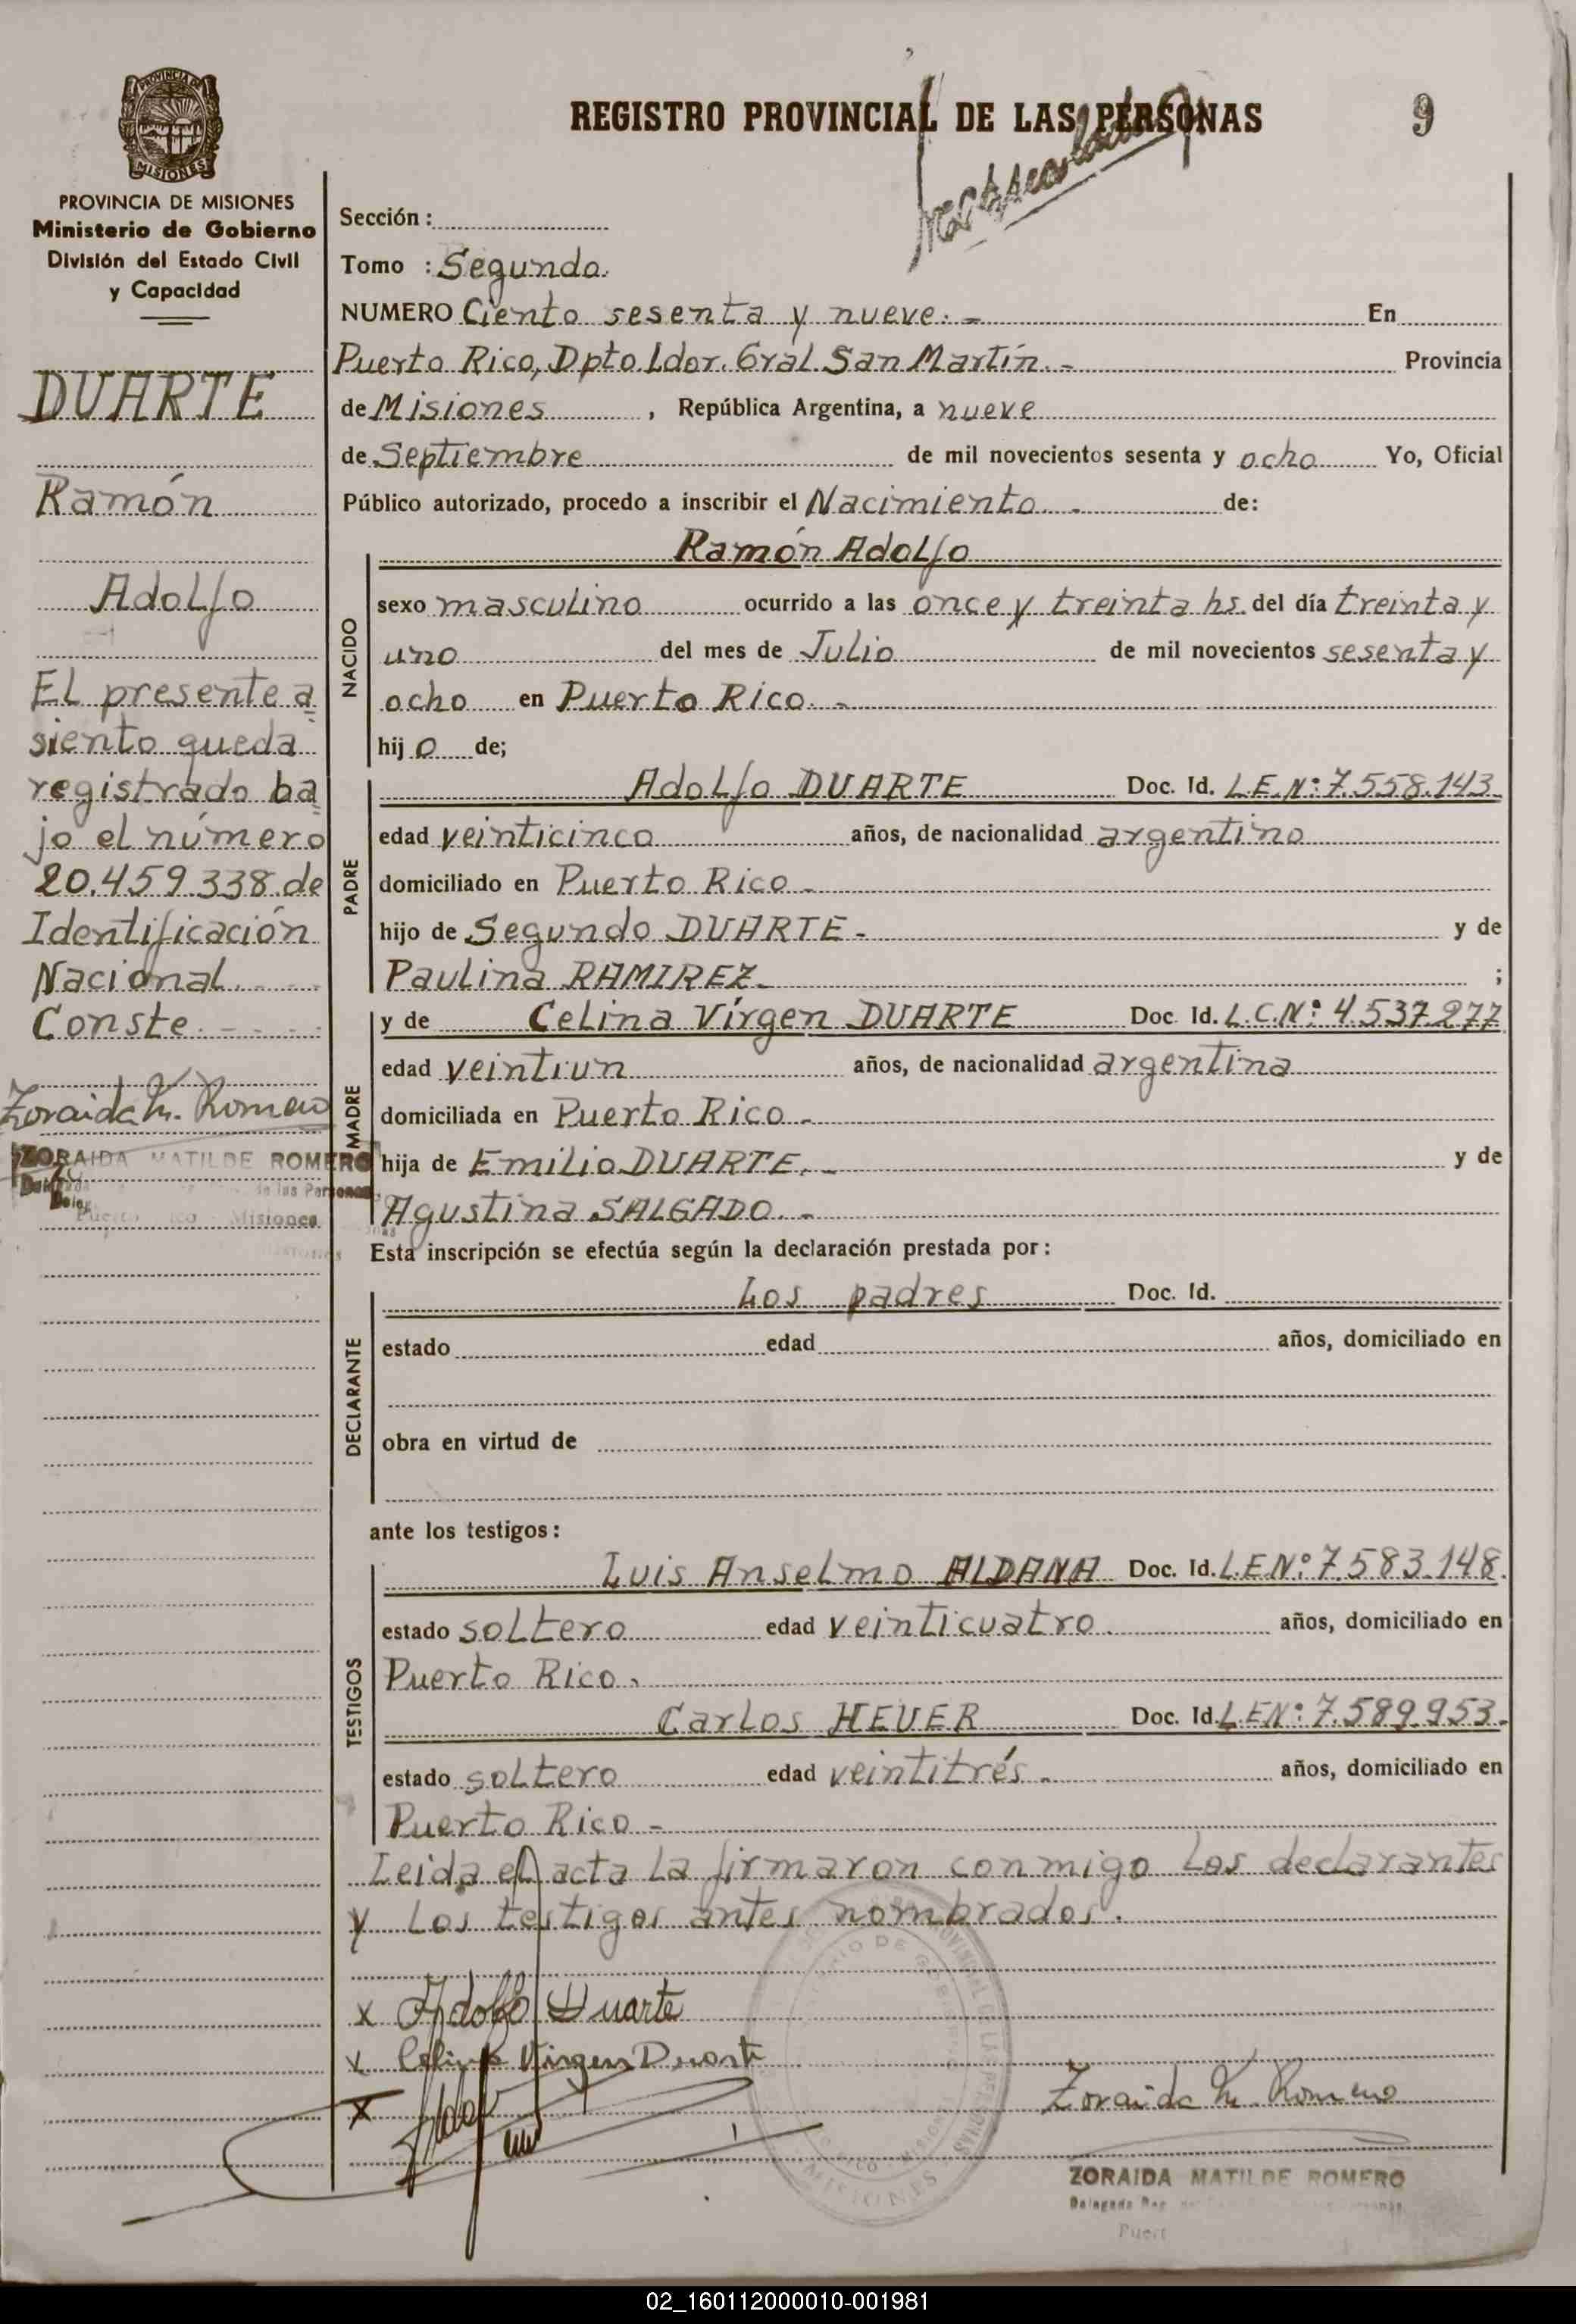 PROVINCIA DE
MISIONES
PROVINCIA DE MISIONES
Ministerio de Gobierno
División del Estado Civil
y Capacidad
DUARTE
Ramón
Adolfo
El presente a
siento queda
registrado ba
jo el número
20.459.338 de
Identificación
Nacional.
Conste.
Zoraida M. Romero
ZORAIDA MATILDE ROMERO
de las Personas
Misiones
REGISTRO PROVINCIAL DE LAS PERSONAS
9
Sección:
Tomo : Segundo.
NUMERO Ciento sesenta y nueve.- En
Puerto Rico, Dpto. Ldor. Gral. San Martín.- Provincia
de Misiones , República Argentina, a nueve
de Septiembre de mil novecientos sesenta y ocho Yo, Oficial
Público autorizado, procedo a inscribir el Nacimiento.- de:
NACIDO
Ramón Adolfo
sexo masculino ocurrido a las once y treinta hs. del día treinta y
uno del mes de Julio de mil novecientos sesenta y
ocho en Puerto Rico.-
hijo de;
PADRE
Adolfo DUARTE Doc. Id. L.E.Nº 7.558.143-
edad veinticinco años, de nacionalidad argentino
domiciliado en Puerto Rico-
hijo de Segundo DUARTE- y de
Paulina RAMIREZ- ;
MADRE
y de Celina Vírgen DUARTE Doc. Id. L.C.Nº 4.537.277
edad veintiun años, de nacionalidad argentina
domiciliada en Puerto Rico-
hija de Emilio DUARTE.- y de
Agustina SALGADO.-
Esta inscripción se efectúa según la declaración prestada por:
DECLARANTE
Los padres Doc. Id.
estado edad años, domiciliado en
obra en virtud de
ante los testigos:
TESTIGOS
Luis Anselmo ALDANA Doc. Id. L.E.Nº 7.583.148.
estado soltero edad veinticuatro. años, domiciliado en
Puerto Rico.
Carlos HEVER Doc. Id. L.E.Nº 7.589.953.
estado soltero edad veintitrés.- años, domiciliado en
Puerto Rico-
Leida el acta la firmaron conmigo los declarantes
y los testigos antes nombrados.
x Adolfo Duarte
x Celina Virgen Duarte
x
Zoraida M. Romero
ZORAIDA MATILDE ROMERO
02_160112000010-001981